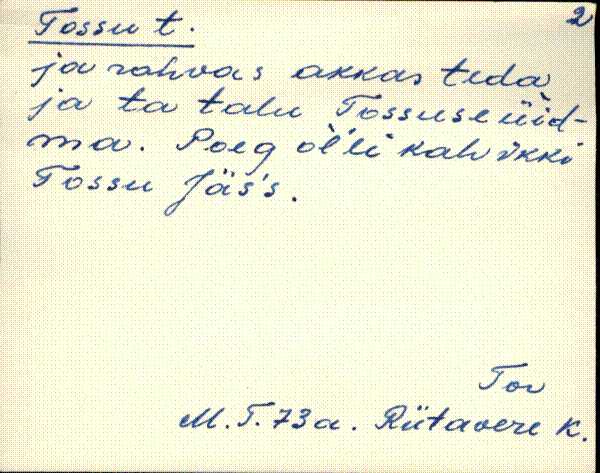 2
Tossu t.
ja rahvas akkas teda
ja ta talu Tossuse üid-
ma. Poeg ol'li kah ikki
Tossu Jäs's.
Tor
M.T. 73a. Riitavere k.